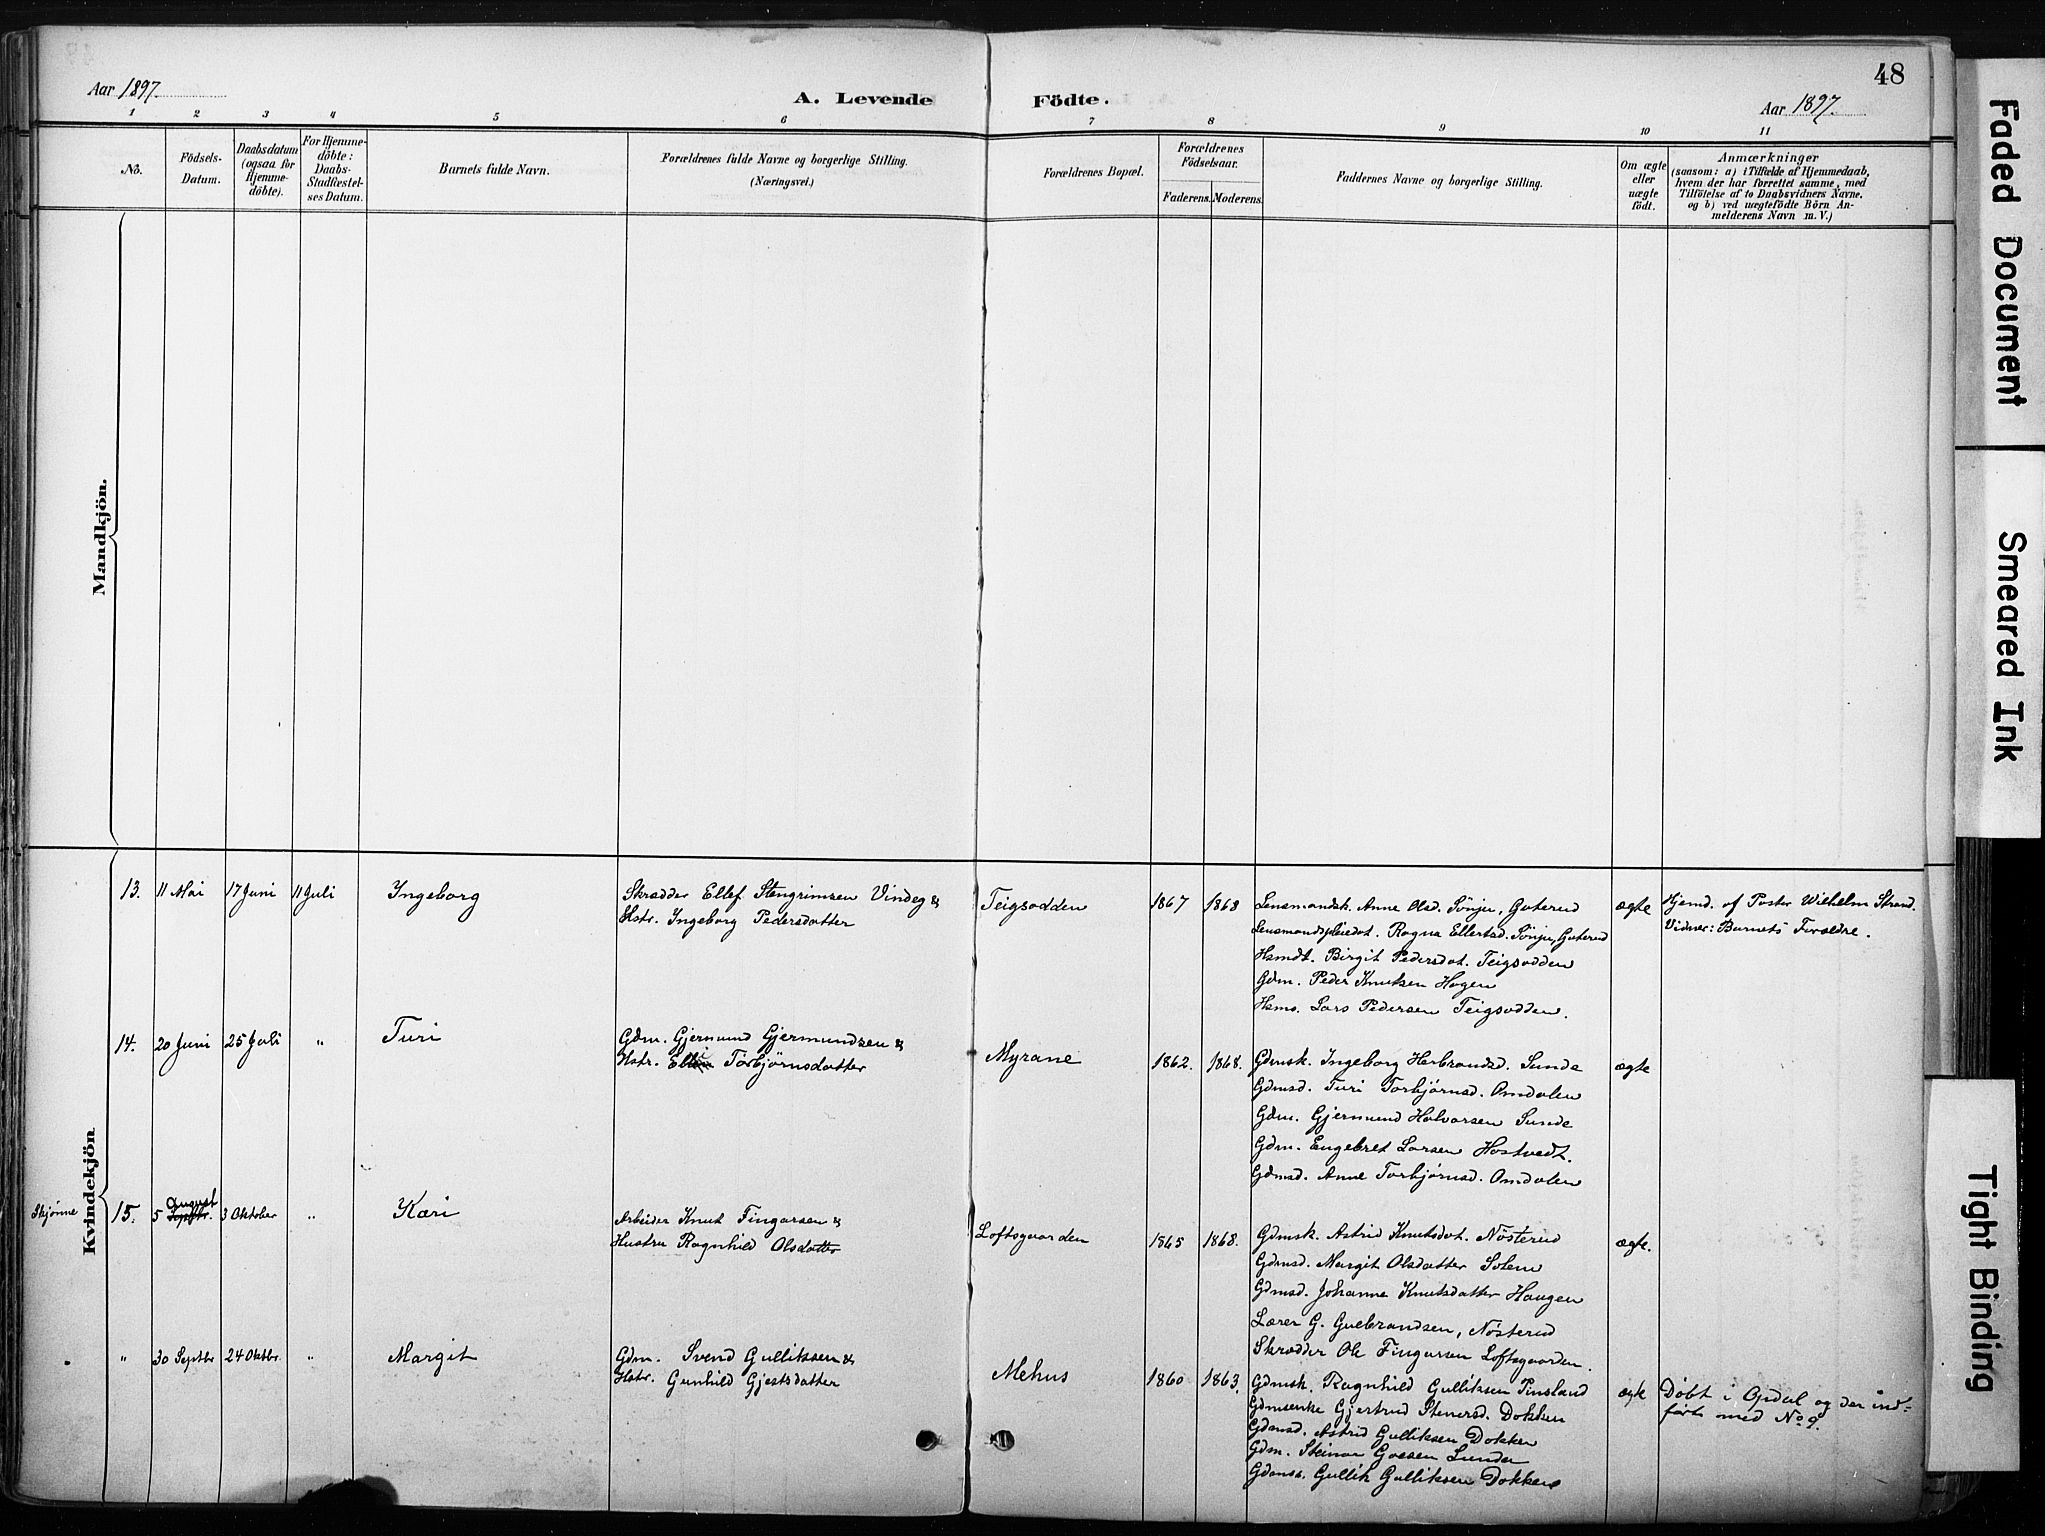 48
Aar 1897.
A. Levende Födte.
Aar 1897.
1 2 3 4 5 6 7 8 9 10 11
No.
Födsels-Datum.
Daabsdatum (ogsaa for Hjemme-döbte).
For Hjemme-döbte: Daabs-Stadfæstel-ses Datum.
Barnets fulde Navn.
Forældrenes fulde Navne og borgerlige Stilling.
(Næringsvei.)
Forældrenes Bopæl.
Forældrenes Födselsaar.
Faderens. Moderens.
Faddernes Navne og borgerlige Stilling.
Om ægte eller uægte födt.
Anmærkninger
(saasom: a) i Tilfælde af Hjemmedaab,
hvem der har forrettet samme, med
Tilföielse af to Daabsvidners Navne,
og b) ved uægtefödte Börn An-
melderens Navn m. V.)
Mandkjön.
Kvindekjön
13. 11 Mai 17 Juni 11 Juli Ingeborg
Skrædder Ellef Stengrimsen Vindeg &
Hstr. Ingeborg Pedersdatter
Teigsodden 1867 1868
Lensmandsk. Anne Olsd. Sönju, Guterud
Lensmandspleiedat. Ragna Ellertsd. Sönju, Guterud
Hsmdt. Birgit Pedersdat. Teigsodden
Gdm. Peder Knutsen Hagen
Hsms. Lars Pedersen Teigsodden.
ægte
Hjemd. af Pastor Wilhelm Strand.
Vidner: Barnets Forældre.
14. 20 Juni 25 Juli " Turi
Gdm. Gjermund Gjermundsen &
Hstr. Elli Torbjørnsdatter
Myrane 1862. 1868.
Gdmsk. Ingeborg Herbrandsd. Sunde
Gdmsd. Turi Torbjørnsd. Omdalen
Gdm. Gjermund Halvorsen Sunde
Gdm. Engebret Larsen Hostvedt.
Gdmsd. Anne Torbjørnsd. Omdalen
ægte
Skjønne 15. 5 August Septbr. 3 Oktober " Kari
Arbeider Knut Fingarsen &
Hustru Ragnhild Olsdatter
Loftsgaarden 1865 1868.
Gdmsk. Astrid Knutsdat. Nösterud
Gdmsd. Margit Olsdatter Solem
Gdmsd. Johanne Knutsdatter Haugen
Lærer G. Gulbrandsen, Nösterud
Skrædder Ole Fingarsen Loftsgaarden.
ægte.
" 30 Septbr 24 Oktbr. " Margit
Gdm. Svend Gulliksen &
Hstr. Gunhild Gjestsdatter
Mehus 1860 1863.
Gdmsk. Ragnhild Gulliksen Tinsland
Gdmsenke Gjertrud Stenersd. Dokken
Gdmsd. Astrid Gulliksen Dokken
Gdm. Steinar Goesen Lunden
Gdmss. Gullik Gulliksen Dokken
ægte
Döbt i Opdal og der ind-
ført med No 9.
Faded Document
Smeared Ink
Tight Binding